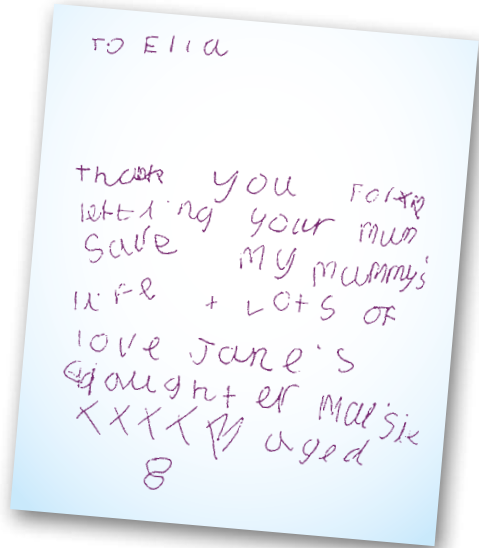 TO Ella
thank you For
letting your mum
Save MY mummy's
life + LOTS OF
love Jane's
daughter Maisie
XXXX aged
8